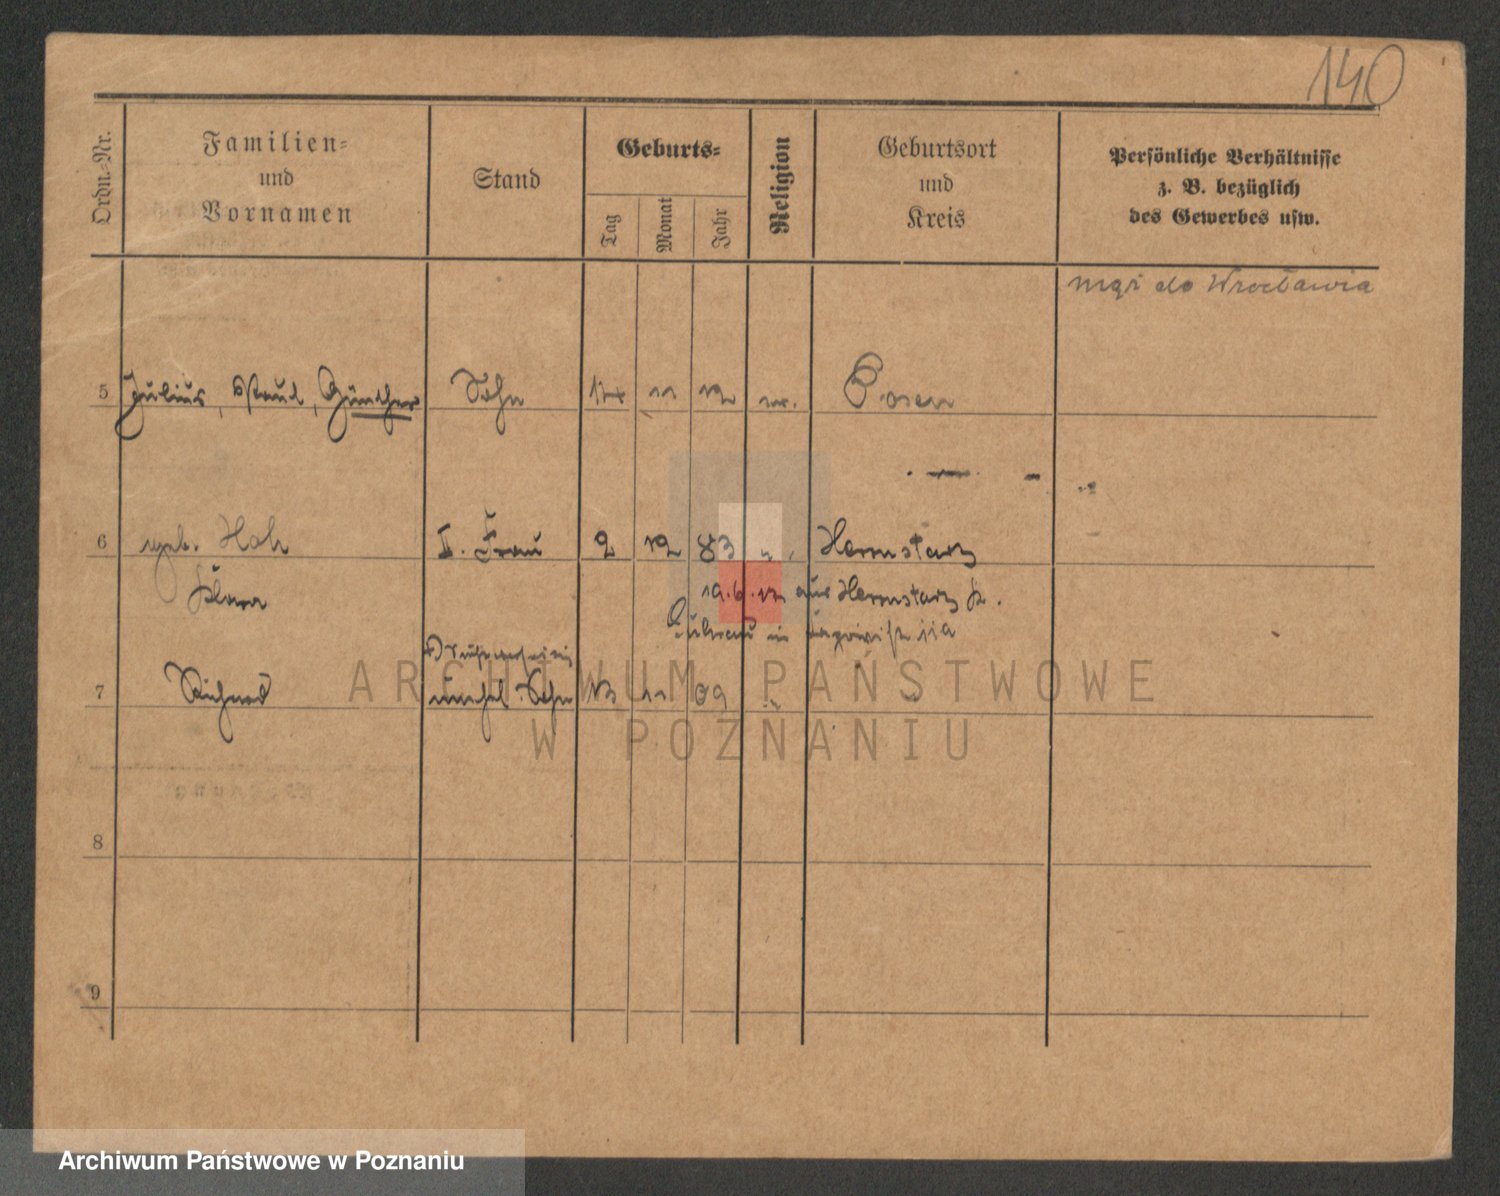 140
Ordn.-Nr.
Familien-
und
Vornamen
Stand
Geburts-
Tag
Monat
Jahr
Religion
Geburtsort
und
Kreis
Persönliche Verhältnisse
z. B. bezüglich
des Gewerbes usw.
do Wrocławia
5 Julius, Paul, Günther Sohn 11 12 Posen
6 geb. II. Frau 2 12 83 Herrnstadt
Klara 19.6.12 aus Herrnstadt K.
Guhrau in
7 Richard unehel. Sohn 13 11 09
8
9
ARCHIWUM PAŃSTWOWE
W POZNANIU
Archiwum Państwowe w Poznaniu